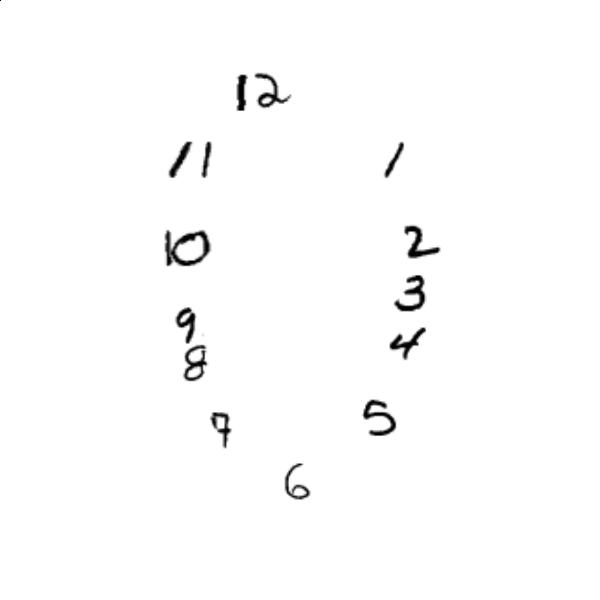 12
11 1
10 2
3
9
4
8
7 5
6